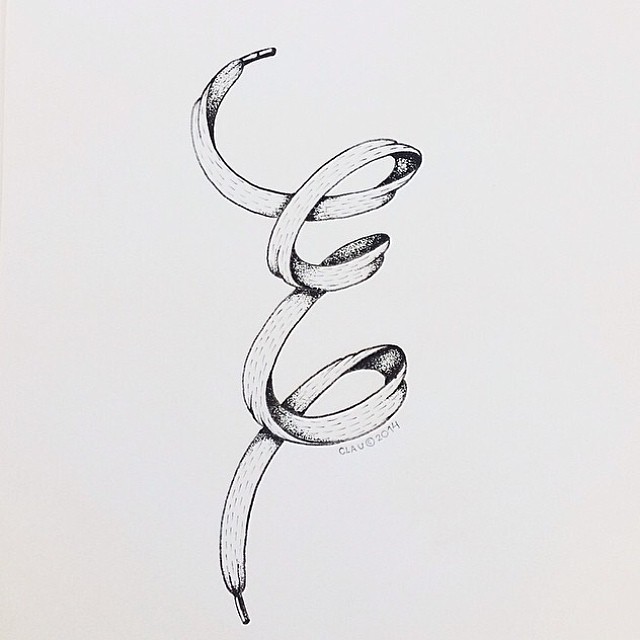 CLAU©2014